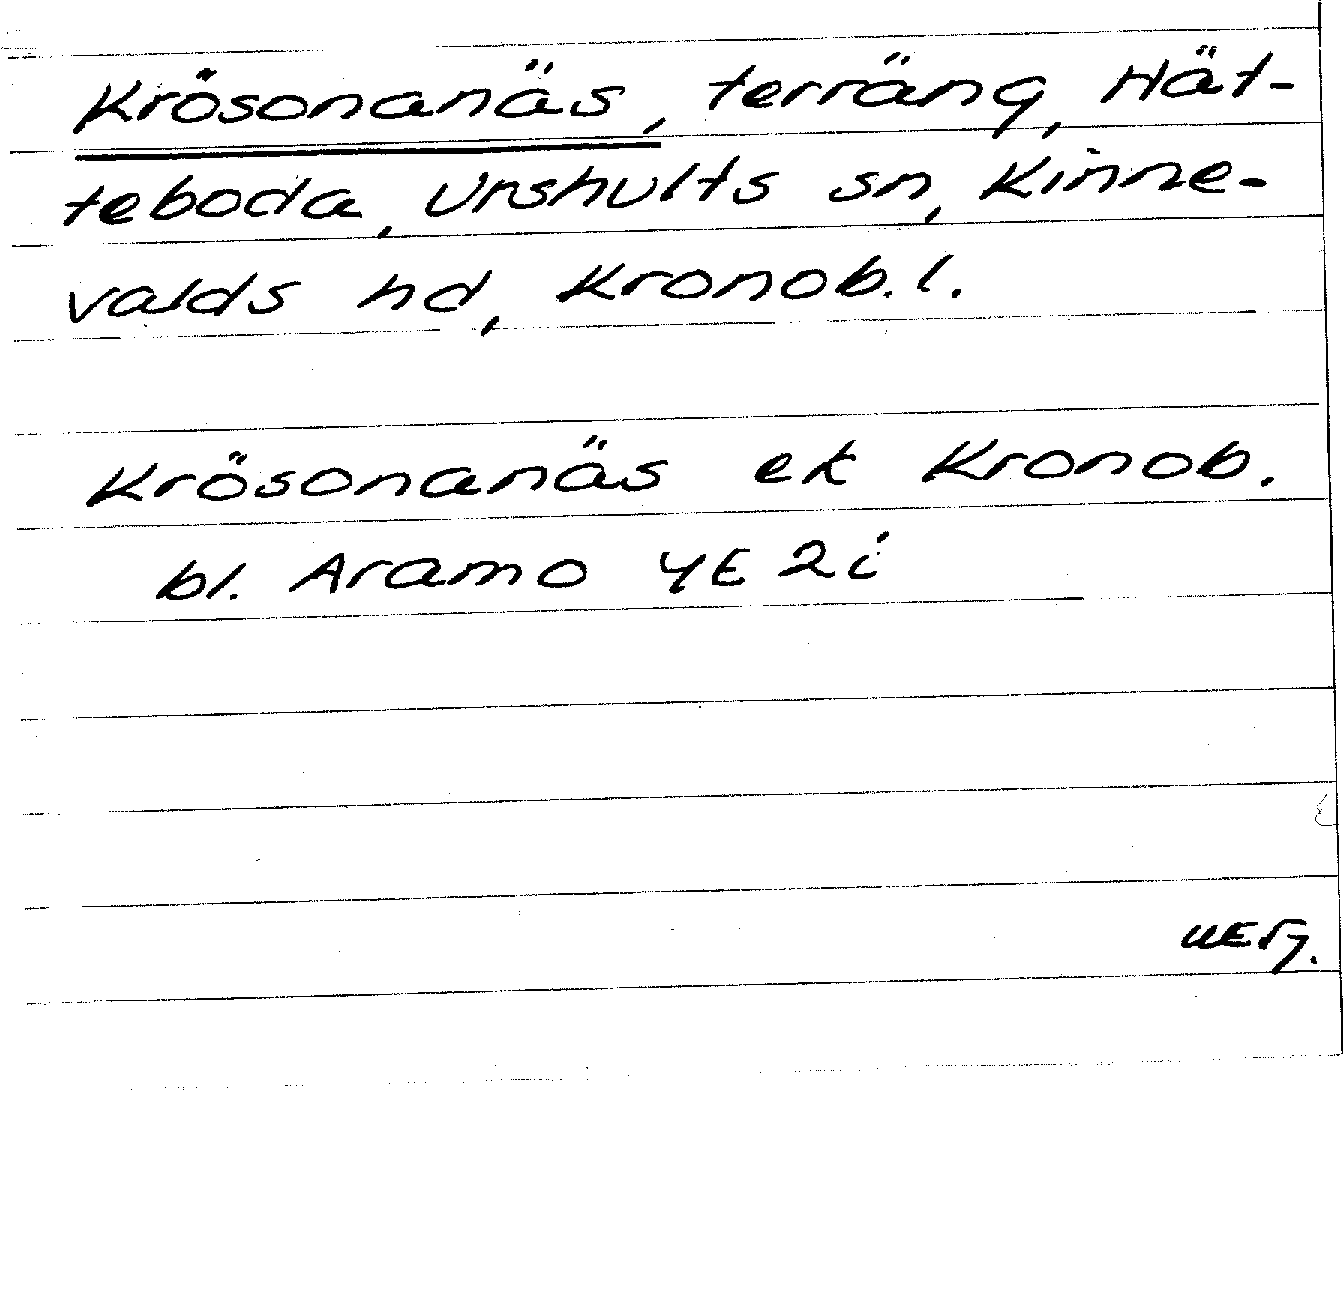 Krösonanäs, terräng, Hät-
teboda, Urshults sn, Kinne-
valds hd, Kronob. l.
Krösonanäs ek Kronob.
bl. Aramo 4E 2i